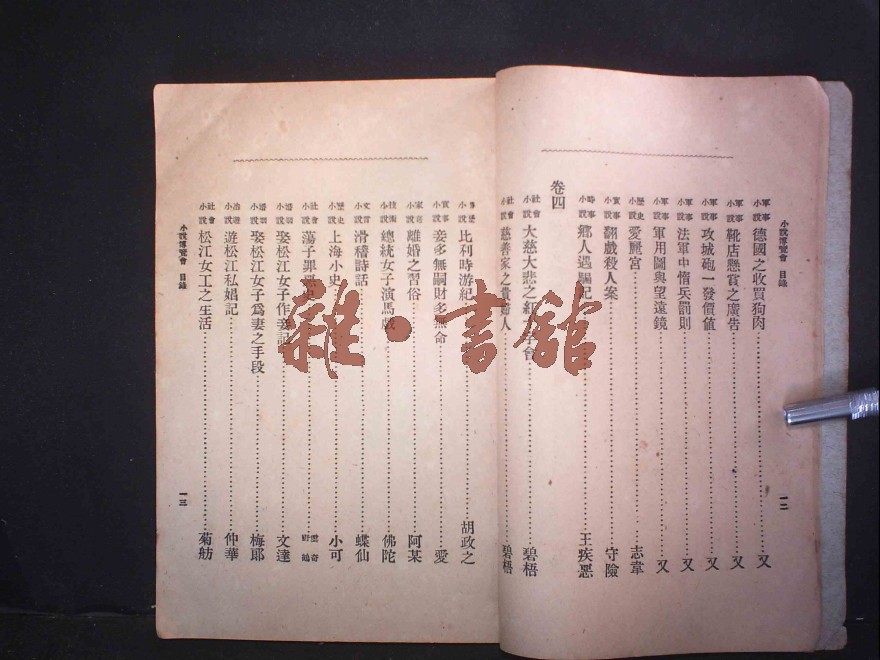 小說博覽會 目錄
一二
軍事小說 德國之收買狗肉 又
軍事小說 靴店懸賞之廣告 又
軍事小說 攻城砲一發價值 又
軍事小說 法軍中惰兵罰則 又
軍事小說 軍用圖與望遠鏡 又
歷史小說 愛麗宮 志韋
實事小說 翻戲殺人案 守險
時事小說 鄉人遇騙記 王疾惡
卷四
社會小說 大慈大悲之紅 會 碧梧
社會小說 慈善家之貴婦人 碧梧
小說 比利時游紀 胡政之
實事小說 妾多無嗣財多無命 愛
家庭小說 離婚之習俗 阿某
技術小說 總統女子演馬戲 佛陀
文言小說 滑稽詩話 蝶仙
歷史小說 上海小史 小可
社會小說 蕩子罪惡史
婚姻小說 娶松江女子作妾記 文達
婚姻小說 娶松江女子爲妻之手段 梅郎
冶遊小說 遊松江私娼記 仲華
社會小說 松江女工之生活 菊舫
小說博覽會 目錄
一三
雜·書館